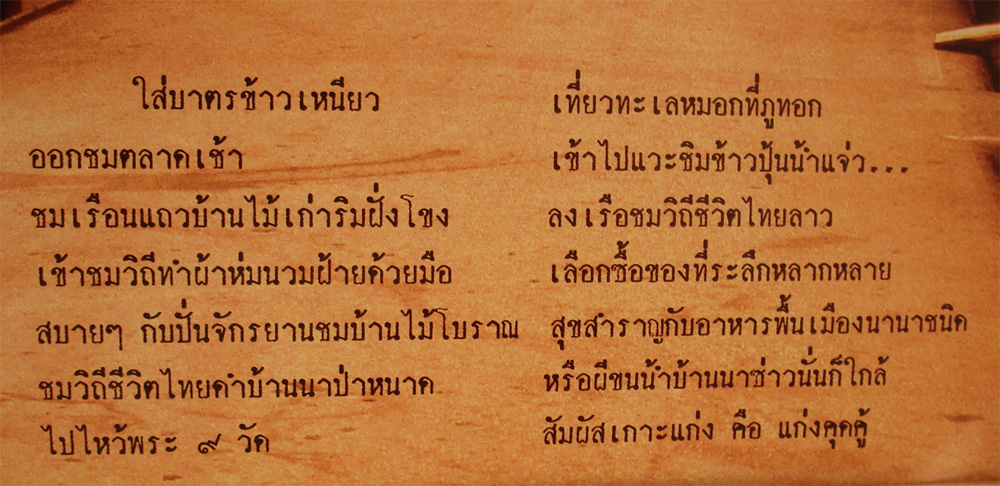 ใส่บาตรข้าวเหนียว
ออกชมตลาดเช้า
ชมเรือนแถวบ้านไม้เก่าริมฝั่งโขง
เข้าชมวิถีทำผ้าห่มนวมฝ้ายด้วยมือ
สบายๆ กับปั่นจักรยานชมบ้านไม้โบราณ
ชมวิถีชีวิตไทยดำบ้านนาป่าหนาด
ไปไหว้พระ ๙ วัด
เที่ยวทะเลหมอกที่ภูทอก
เข้าไปแวะชิมข้าวปุ้นน้ำแจ่ว...
ลงเรือชมวิถีชีวิตไทยลาว
เลือกซื้อของที่ระลึกหลากหลาย
สุขสำราญกับอาหารพื้นเมืองนานาชนิด
หรือผีขนน้ำบ้านนาซ่าวนั่นก็ใกล้
สัมผัสเกาะแก่ง คือ แก่งคุดคู้